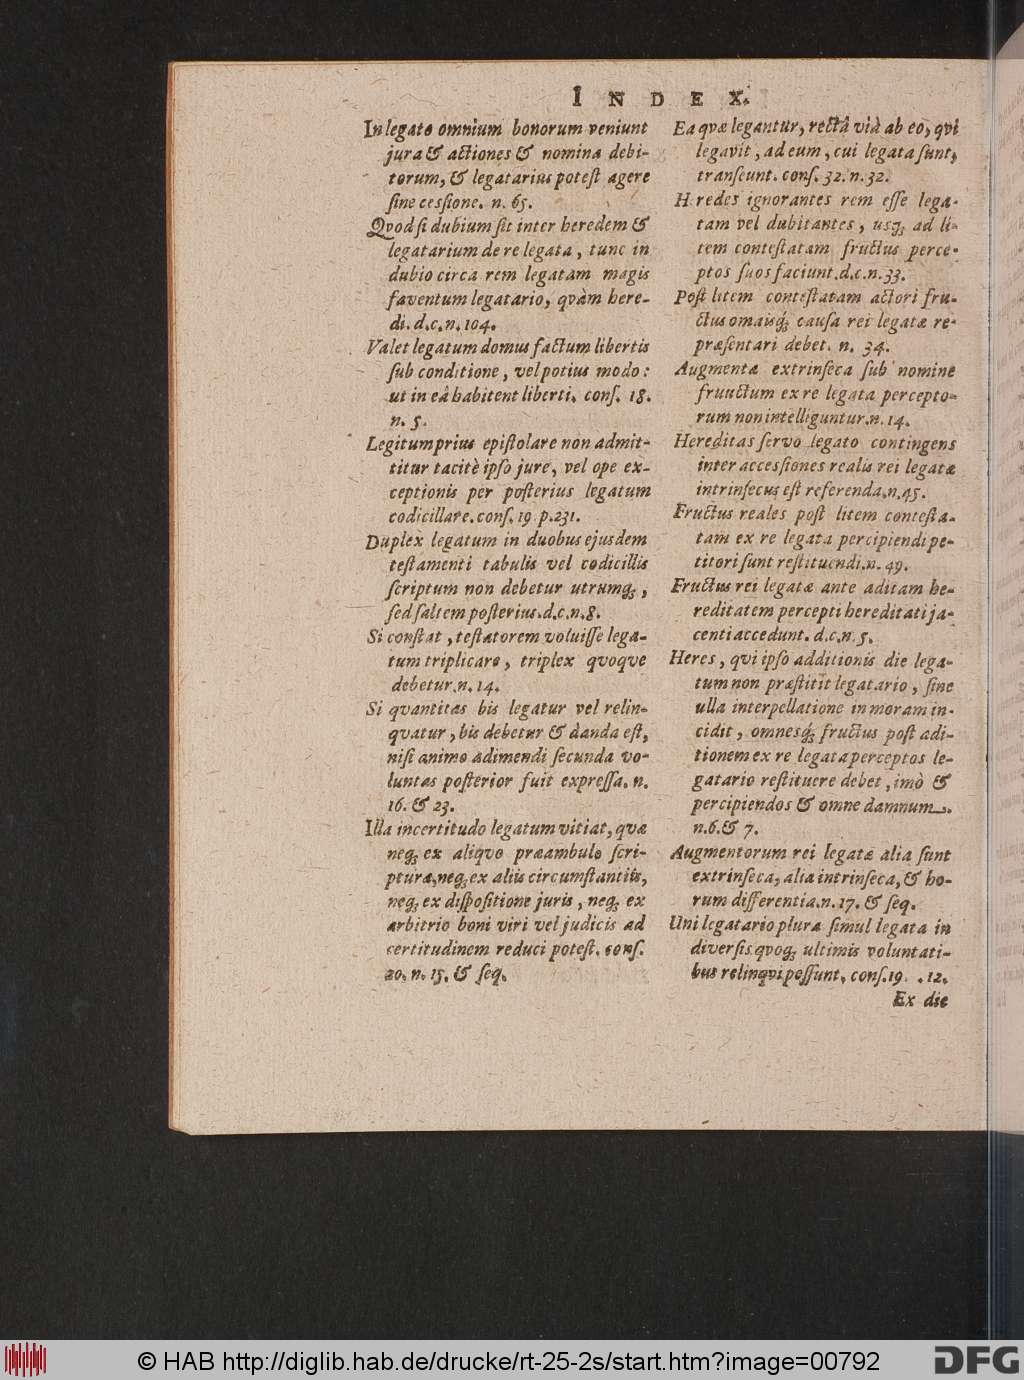 INDEX.
In legato omnium bonorum veniunt
jura & actiones & nomina debi-
torum, & legatarius potest agere
sine cessione. n. 65.
Qvod si dubium sit inter heredem &
legatarium de re legata, tunc in
dubio circa rem legatam magis
faventum legatario, qvàm here-
di. d.c.n. 104.
Valet legatum domus factum libertis
sub conditione, vel potius modo:
ut in eâ habitent liberti. cons. 18.
n. 5.
Legitum prius epistolare non admit-
titur tacitè ipso jure, vel ope ex-
ceptionis per posterius legatum
codicillare. cons. 19 p. 231.
Duplex legatum in duobus ejusdem
testamenti tabulis vel codicillis
scriptum non debetur utrumq;,
sed saltem posterius. d.c.n. 8.
Si constat, testatorem voluisse lega-
tum triplicare, triplex qvoqve
debetur. n. 14.
Si qvantitas bis legatur vel relin-
qvatur, bis debetur & danda est,
nisi animo adimendi secunda vo-
luntas posterior fuit expressa. n.
16. & 23.
Illa incertitudo legatum vitiat, qvæ
neq; ex aliqvo præambulo scri-
pturæ, neq; ex aliis circumstantiis,
neq; ex dispositione juris, neq; ex
arbitrio boni viri vel judicis ad
certitudinem reduci potest. cons.
20. n. 15. & seq.
Ea qvæ legantur, rectâ viâ ab eo, qvi
legavit, ad eum, cui legata sunt,
transeunt. cons. 32. n. 32.
H redes ignorantes rem esse lega-
tam vel dubitantes, usq; ad li-
tem contestatam fructus perce-
ptos suos faciunt. d.c.n. 33.
Post litem contestatam actori fru-
ctus omnisq́; causa rei legatæ re-
præsentari debet. n. 34.
Augmenta extrinseca sub nomine
fruuctum ex re legata percepto-
rum non intelliguntur. n. 14.
Hereditas servo legato contingens
inter accessiones realis rei legatæ
intrinsecus est referenda. n. 45.
Fructus reales post litem contesta-
tam ex re legata percipiendi pe-
titori sunt restituendi. n. 49.
Fructus rei legatæ ante aditam he-
reditatem percepti hereditati ja-
centi accedunt. d.c.n. 5.
Heres, qvi ipso additionis die lega-
tum non præstitit legatario, sine
ulla interpellatione in moram in-
cidit, omnesq́; fructus post adi-
tionem ex re legata perceptos le-
gatario restituere debet, imò &
percipiendos & omne damnum.
n. 6. & 7.
Augmentorum rei legatæ alia sunt
extrinseca, alia intrinseca, & ho-
rum differentia. n. 17. & seq.
Uni legatario plura simul legata in
diversis qvoq; ultimis voluntati-
bus relinqvi possunt, cons. 19. . 12.
Ex die
© HAB http://diglib.hab.de/drucke/rt-25-2s/start.htm?image=00792
DFG